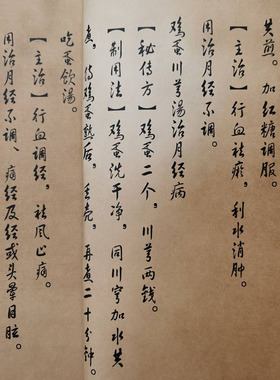 共煎。加红糖調服。
【主治】行血祛瘀,利水消肿。
用治月经不調。
鸡蛋川芎湯治月经病
【秘传方】鸡蛋二个,川芎两钱。
【制用法】鸡蛋洗干净,同川芎加水共
煮,待鸡蛋熟后,去壳,再煮二十分钟。
吃蛋飲湯。
【主治】行血調经,祛风止痛。
用治月经不調、痛经及经或头暈目眩。